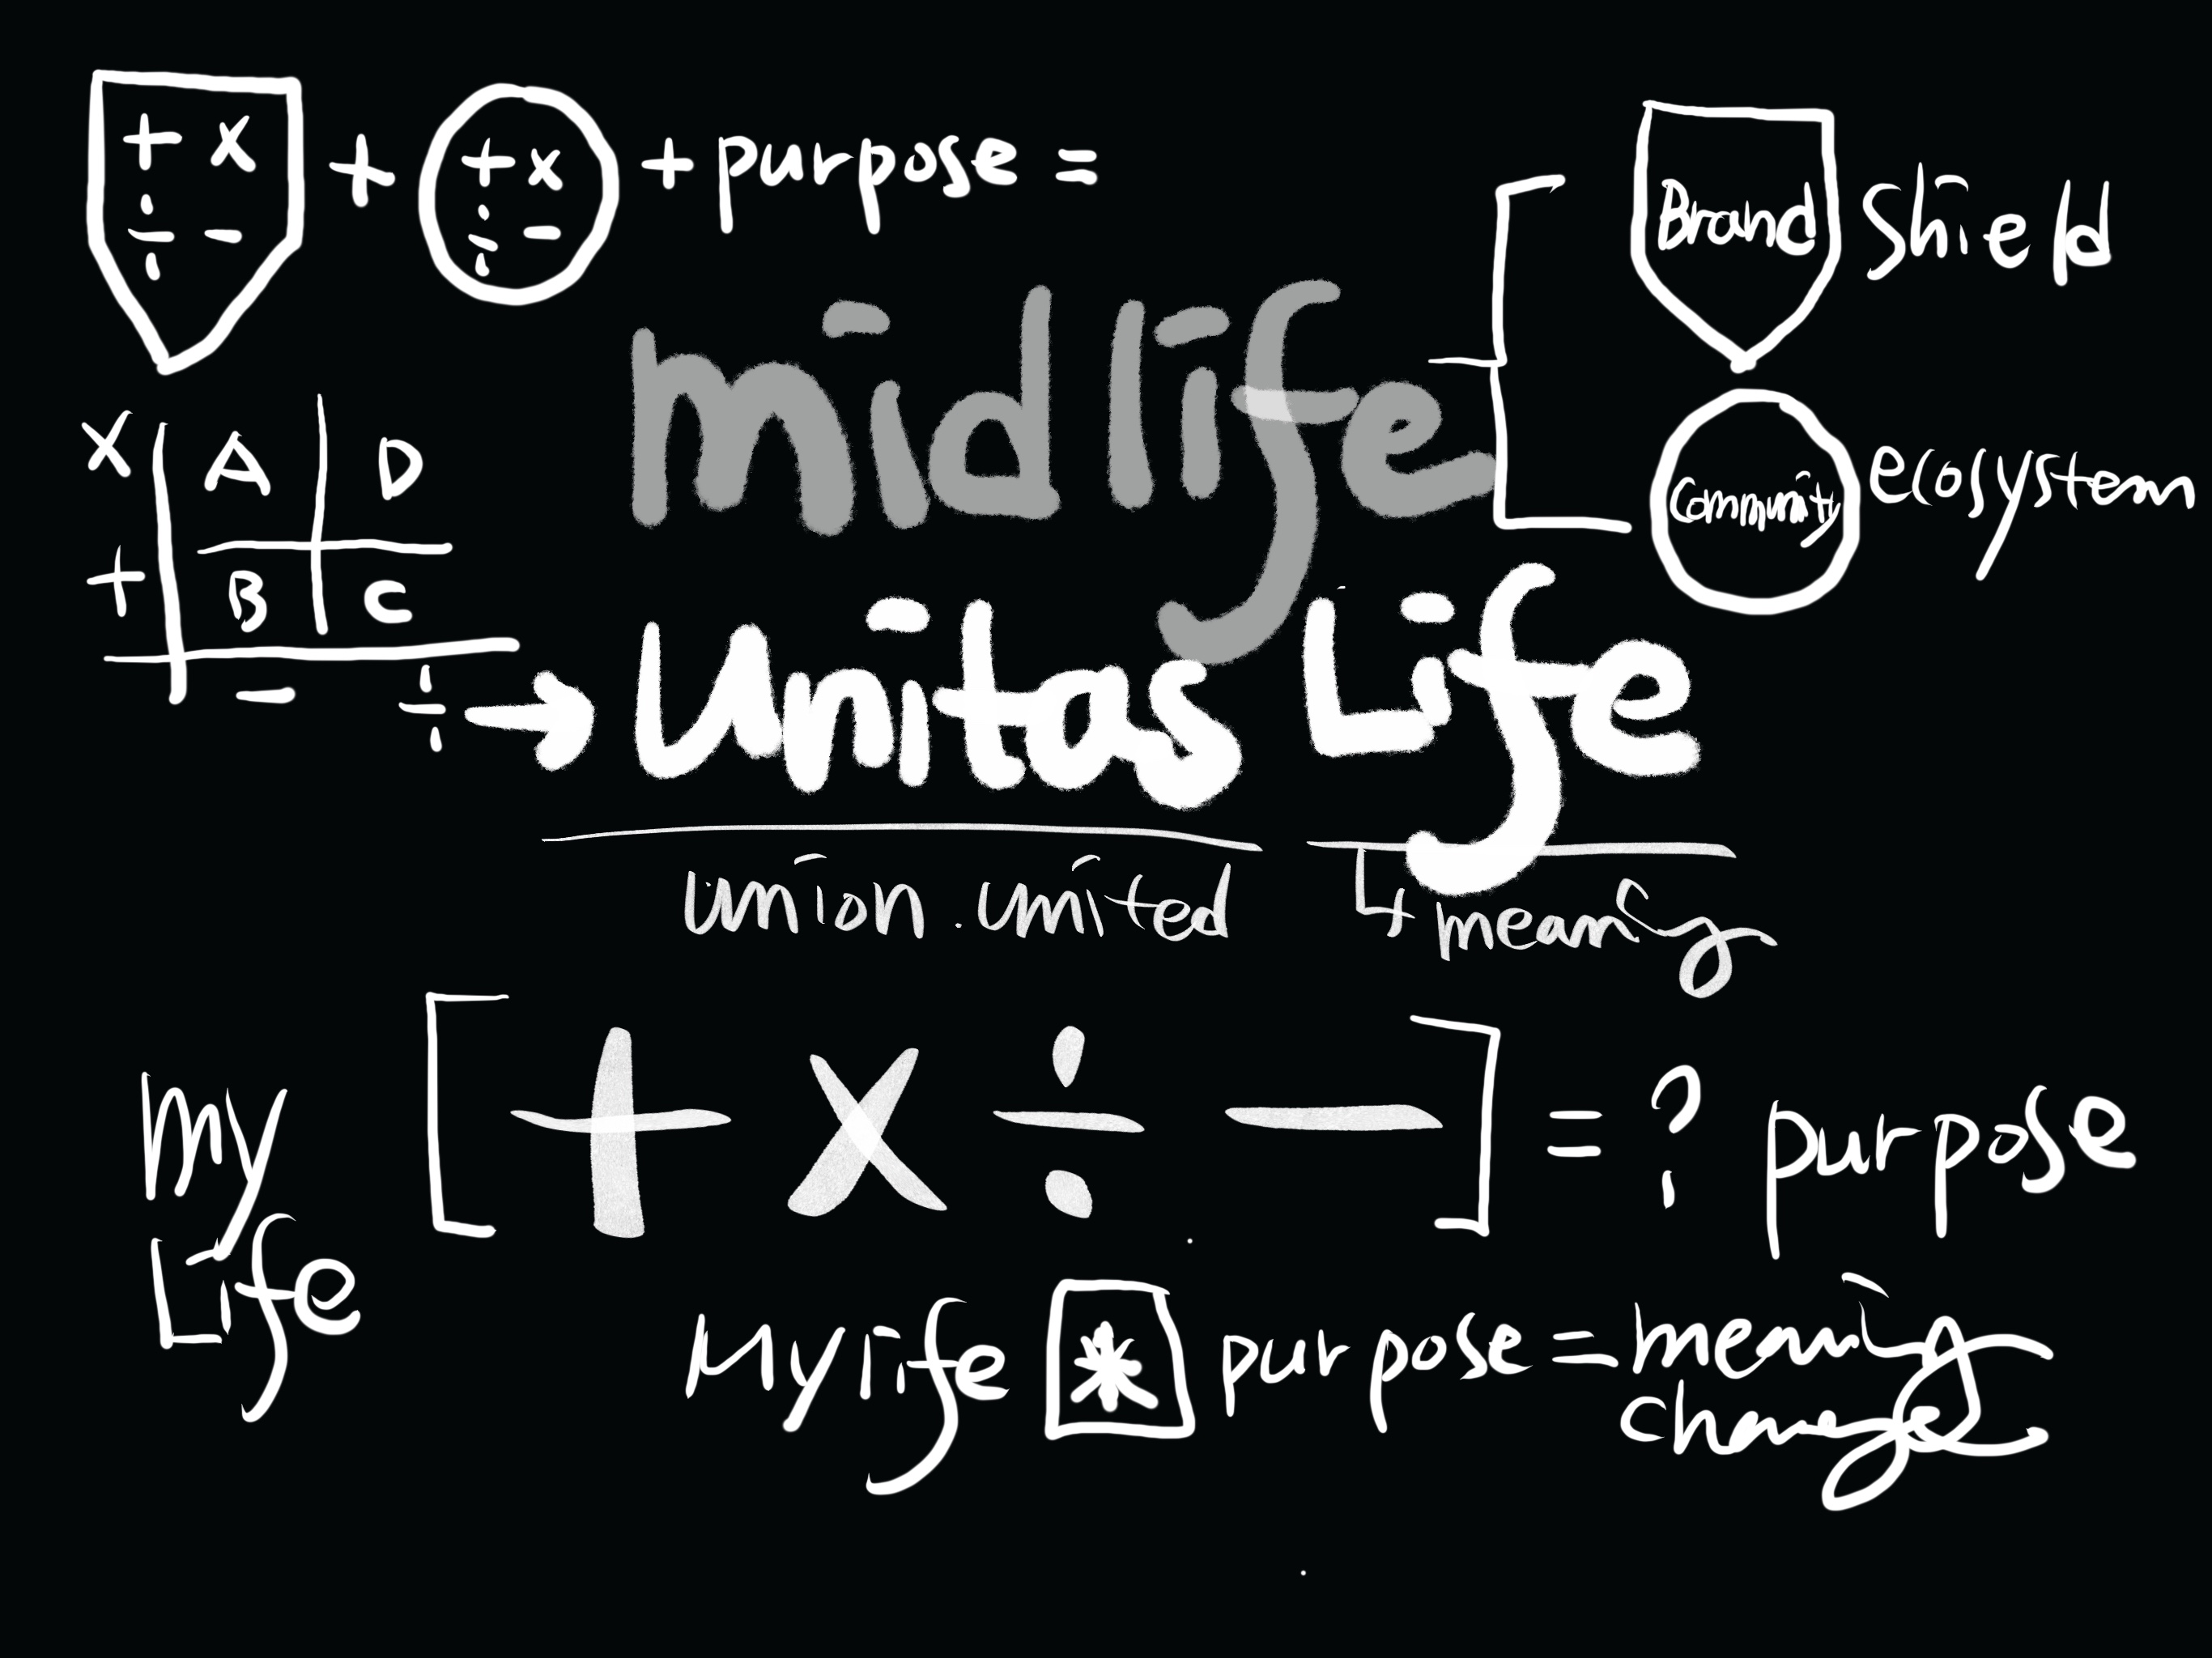 + x
÷ -
+
+ x
÷ -
+ purpose =
Brand Shield
midlife
Community ecosystem
x A D
+ B C
- ÷ → Unitas Life
union . united
↳ meaning
My Life [ + x ÷ - ] = ? purpose
My life * purpose = meaning
change